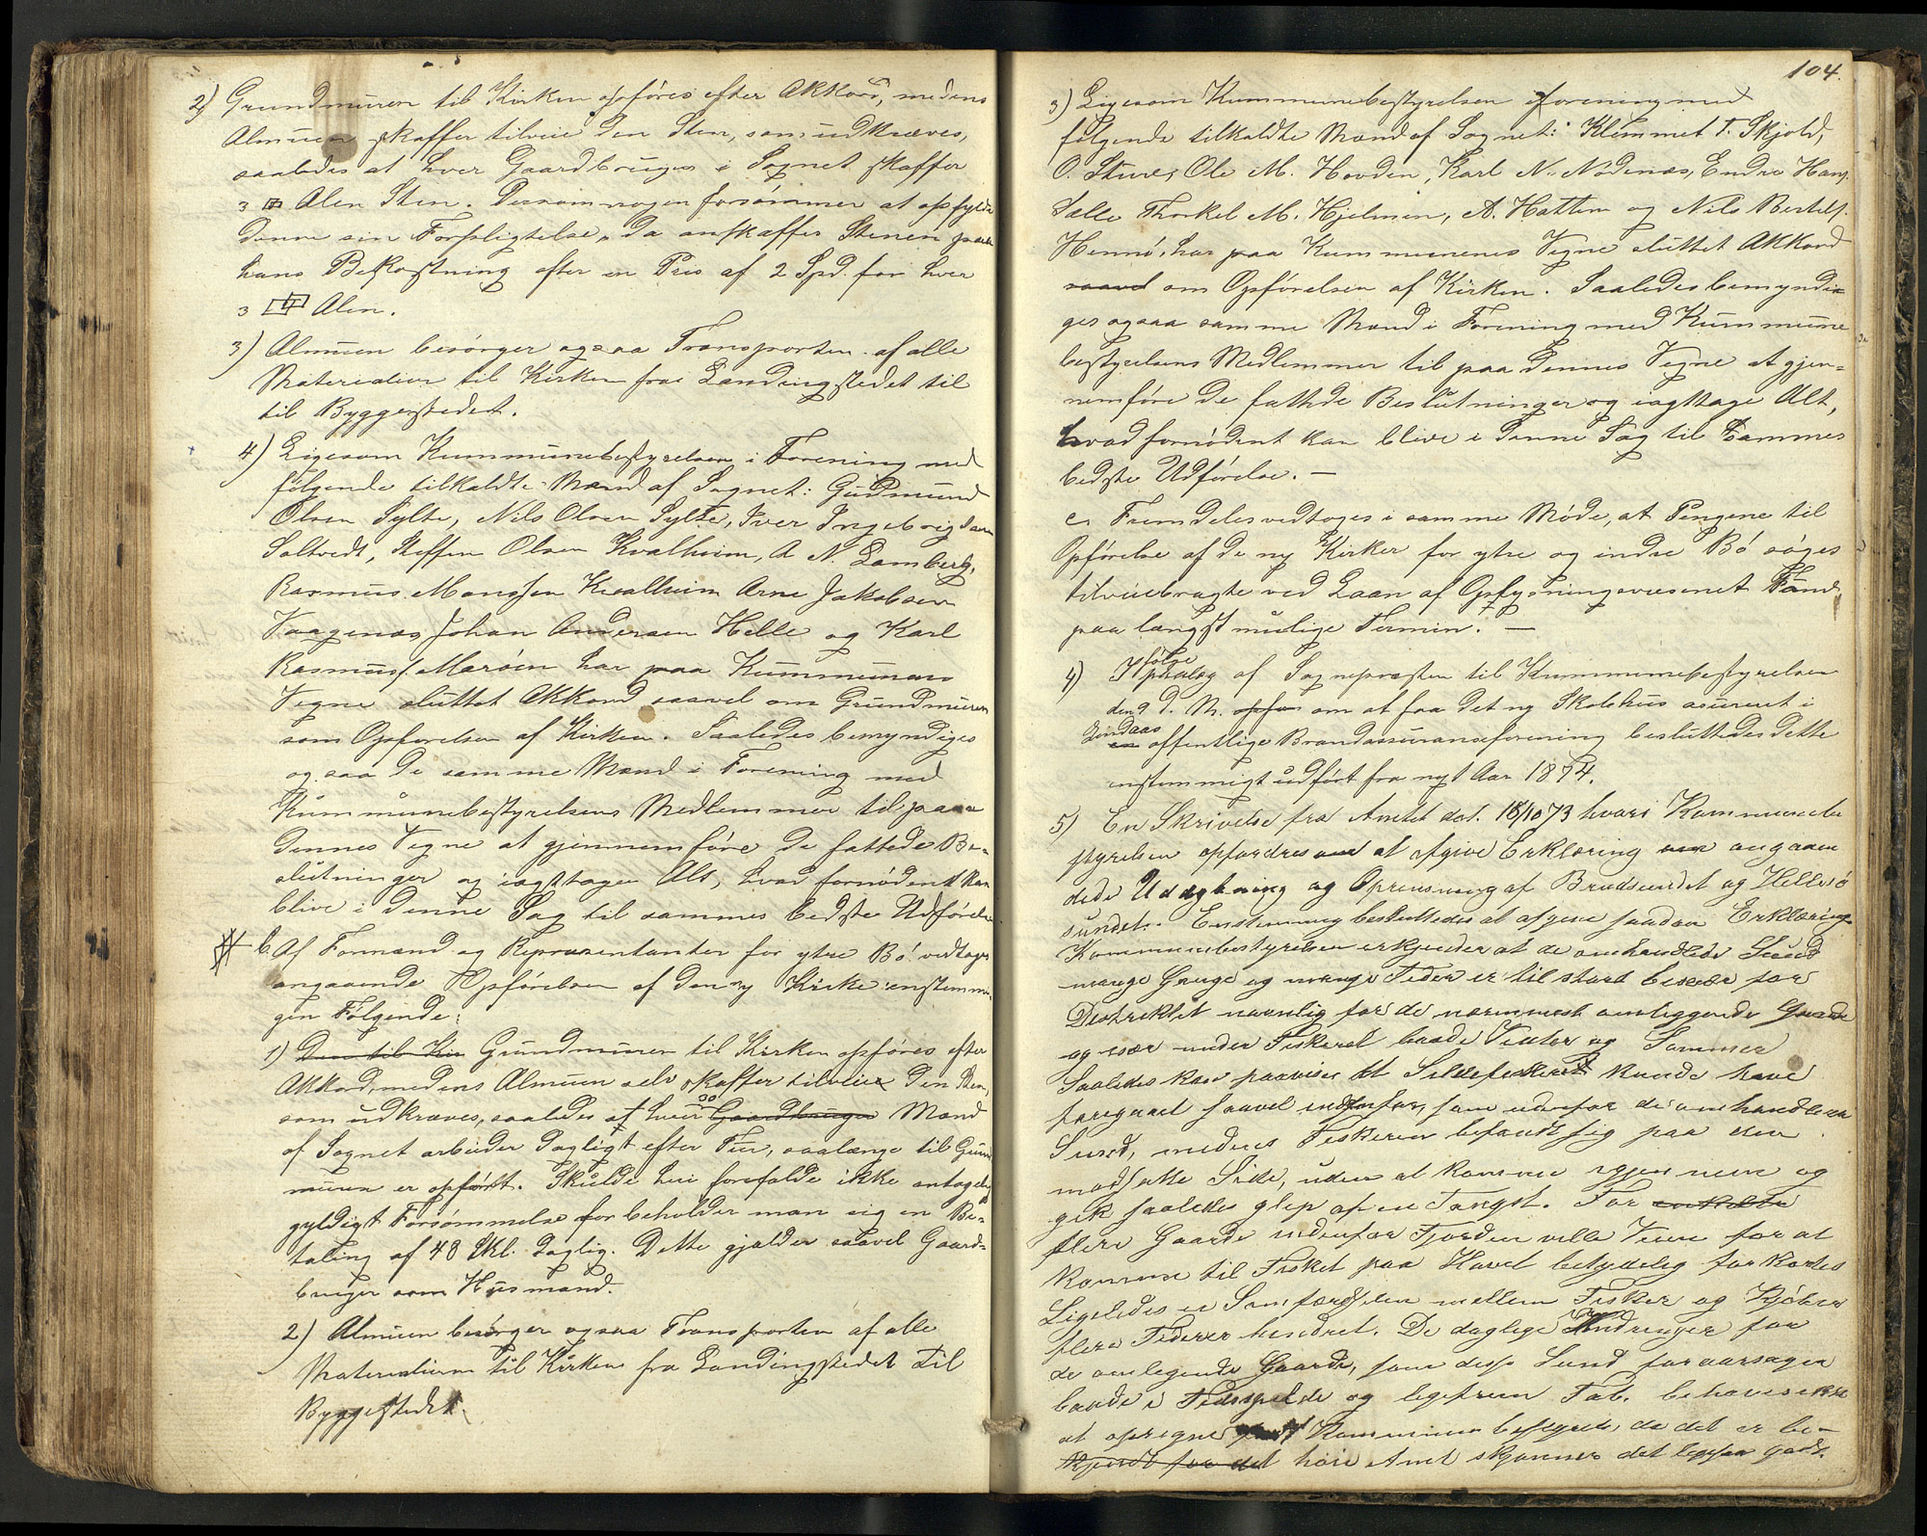 2) Grundmuren til Kirken opføres efter Akkord, medens
Almuen skaffer tilveie den Sten, som udkræves,
saaledes at hver Gaardbruger i Sognet skaffer
3 □ Alen Sten. Dersom nogen forsømmer at opfylde
denne sin Forpligtelse, da anskaffes Stenen paa
hans Bekostning efter en Pris af 2 Spd. for hver
3 □ Alen.
3) Almuen besørger ogsaa Transporten af alle
Materialier til Kirken fra Landingsstedet til
til Byggestedet.
4) Ligesom Kummunebestyrelsen i Forening med
følgende tilkaldte Mænd af Sognet: Gudmund
Olsen Sylte, Nils Olsen Sylte, Iver Ingebrigtsen
Soltvedt, Steffen Olsen Kvalheim, A. N. Lamberg,
Rasmus Monssen Kvalheim Arne Jakobsen
Vaagenæs Johan Andersen Helle og Karl
Rasmuss. Marøen har paa Kummunens
Vegne sluttet Akkord saavel om Grundmuren
som Opførelsen af Kirken. Saaledes bemyndiges
ogsaa de samme Mænd i Forening med
Kummunebestyrelsens Medlemmer til paa
dennes Vegne at gjennemføre de fattede Be-
slutninger og iagttagen Alt, hvad fornødent kan
blive i denne Sag til sammes bedste Udførelse
b. Af Formænd og Repræsentanter for ytre Bø vedtoges
angaaende Opførelsen af den ny Kirke enstemmi-
gen Følgende:
1) Den til Kir Grundmuren til Kirken opføres efter
Akkord, medens Almuen selv skaffer tilveie den Sten,
som udkræves, saaledes at hver 30 Gaardbruger Mand
af Sognet arbeider dagligt efter Tur, saalænge til Grund
muren er opført. Skulde her forefalde ikke antagelig
gyldigt Forsømmelse forbeholder man sig en Be-
taling af 48 Skl. daglig. Dette gjælder saavel Gaard-
bruger som Husmænd.
2) Almuen besørger ogsaa Transporten af alle
Materialierne til Kirken fra Landingsstedet til
Byggestedet.
104.
3) Ligesom Kummunebestyrelsen i Forening med
følgende tilkaldte Mænd af Sognet: Klemmet T. Skjold,
O. Sture, Ole M. Hovden, Karl N. Nødenæs, Endre Hans.
Sælle Thorkel M. Hjelmen, A. Hatlem og Nils Bertels.
Hennø, har paa Kummunenes Vegne sluttet Akkord
saavel om Opførelsen af Kirken. Saaledes bemyndi-
ges ogsaa samme Mænd i Forening med Kummune
bestyrelsens Medlemmer til paa dennes Vegne at gjen-
nemføre de fattede Beslutninger og iagttage Alt,
hvad fornødent kan blive i denne Sag til Sammes
bedste Udførelse. —
c. Fremdeles vedtoges i samme Møde, at Pengene til
Opførelse af de ny Kirker for ytre og indre Bø søges
tilveiebragte ved Laan af Oplysningsvæsenet Fond
paa længst mulige Termin. —
4) Ifølge af Sognepræsten til Kummunebestyrelsen
den 9 d. M. om at faa det ny Skolehus assureret i
Lindaas offentlige Brandassuranceforening besluttedes dette
enstemmigt udført fra nyt Aar 1874.
5) En Skrivelse fra Amtet dat. 18/10 73 hvori Kommunebe
styrelsen opfordres at afgive Erklæring angaaen
dede Uddybning og Oprensning af Brudsundet og Hellesø
sundet. Enstemmig besluttedes at afgive saadan Erklæring
Kommunebestyrelsen erkjender at de omhandlede Sund
mange Gange og mange Tider er til stort besvær for
Distriktet navnlig for de nærmest omliggende Gaarde
og især under Fiskeret baade Vinter og Sommer
Saaledes kan paavises at Sildefiskeriet kunde have
foregaaet saavel indenfor, som udenfor de omhandlede
Sund, medens Fiskeren befandt sig paa den
modsatte Side, uden at komme igjennem og
gik saaledes glip af en Fangst. For enkelte
flere Gaarde indenfor Fjorden ville Veien for at
komme til Fisket paa Havet betydelig forkortes
Ligeledes er Samfærdselen mellem Fisker og Kjøber
flere Tider hindret. De daglige Hindringer for
de omliggende Gaarde, som disse Sund foraarsager
baade i Tidsspilde og ligefrem Tab, behøves ikke
at opregne Kommunebestyrels, da det er be-
kjendt for det høie Amt skjønner det ligesaa godt.